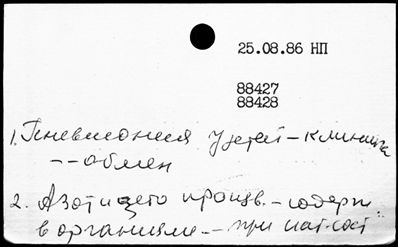 25.08.86 НП
88427
88428
1. Пневмония у детей – клиника
-- обмен
2. Азот и его произв. – содерж
в организме -- при пат. сост.